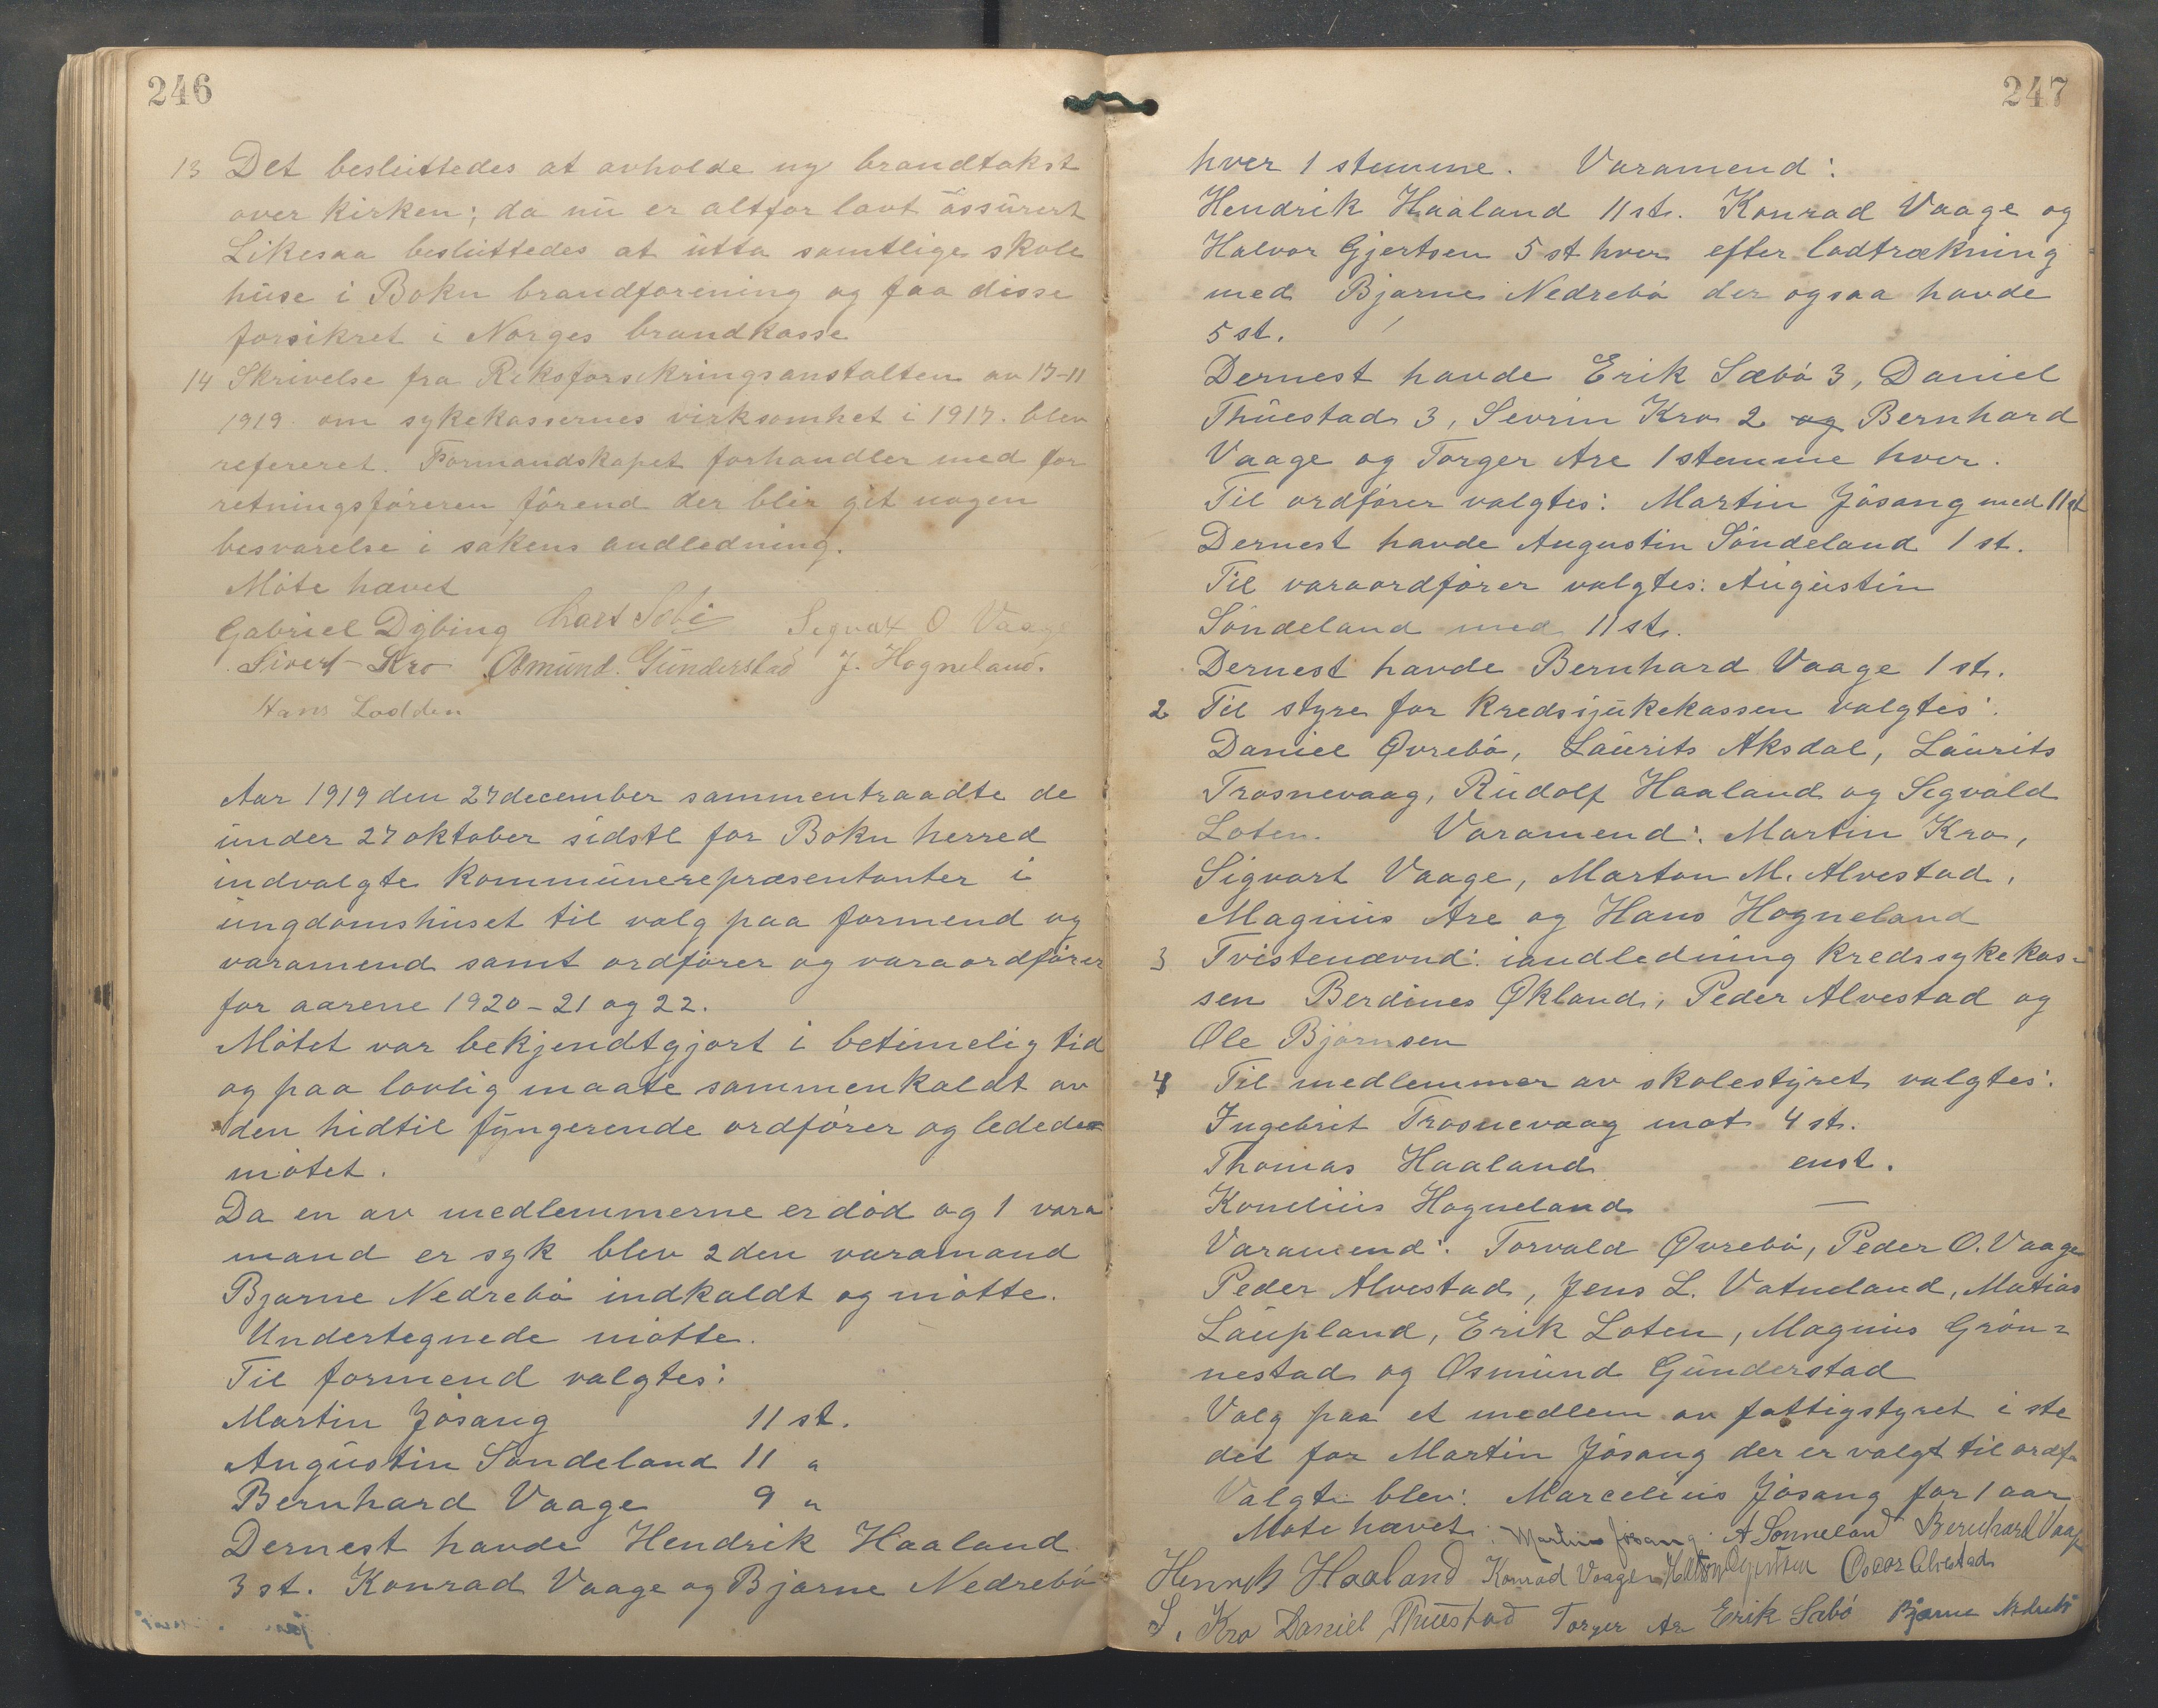 246
13 Det besluttedes at avholde ny brandtakst
over kirken; da nu er altfor lavt assurert
Likesaa besluttedes at utta samtlige skole
huse i Bokn brandforening og faa disse
forsikret i Norges brandkasse
14 Skrivelse fra Riksforsikringsanstalten av 17-11
1919 om sykekassernes virksomhet i 1917. blev
refereret. Formandskapet forhandler med for
retningsføreren førend der blir git nogen
besvarelse i sakens andledning.
Møte hævet
Gabriel Dybing Lars Sebö Segvat O Vaage
Sivert Kro Osmund Gunderstad J. Hogneland.
Hans Lodden
Aar 1919 den 27 december sammentraadte de
under 27 oktober sidstl for Bokn herred
indvalgte kommunerepræsentanter i
ungdomshuset til valg paa formend og
varamend samt ordfører og varaordfører
for aarene 1920-21 og 22.
Møtet var bekjendtgjort i betimelig tid
og paa lovlig maate sammenkaldt av
den hidtil fungerende ordfører og ledede
møtet.
Da en av medlemmerne er død og 1 vara
mand er syk blev 2den varamand
Bjarne Nedrebø indkaldt og møtte.
Undertegnede møtte.
Til formend valgtes:
Martin Jøsang 11 st.
Augustin Søndeland 11 "
Bernhard Vaage 9 "
Dernest havde Hendrik Haaland
3 st. Konrad Vaage og Bjarne Nedrebø
247
hver 1 stemme. Varamend:
Hendrik Haaland 11 st. Konrad Vaage og
Halvor Gjertsen 5 st hver efter lodtrækning
med Bjarne Nedrebø der ogsaa havde
5 st.
Dernest havde Erik Sæbø 3, Daniel
Thuestad 3, Sevrin Kro 2 og Bernhard
Vaage og Torger Are 1 stemme hver.
Til ordfører valgtes: Martin Jøsang med 11 st
Dernest havde Augustin Søndeland 1 st.
Til varaordfører valgtes: Augustin
Søndeland med 11 st.
Dernest havde Bernhard Vaage 1 st.
2 Til styre for kredsjukekassen valgtes:
Daniel Øvrebø, Laurits Aksdal, Laurits
Trosnevaag, Rudolf Haaland og Segvald
Loten. Varamend: Martin Kro,
Sigvart Vaage, Marton M. Alvestad,
Magnus Are og Hans Hogneland
3 Tvistenævnd: iandledning kredssykekas-
sen Berdines Økland, Peder Alvestad og
Ole Bjørnsen
4 Til medlemmer av skolestyret valgtes:
Ingebrit Trosnevaag mot 4 st.
Thomas Haaland enst.
Konelius Hogneland —
Varamend: Torvald Øvrebø, Peder O. Vaage
Peder Alvestad, Jens L. Vatneland, Matias
Laupland, Erik Loten, Magnus Grøn=
nestad og Osmund Gunderstad
Valg paa et medlem av fattigstyret i ste
det for Martin Jøsang der er valgt til ordf.
Valgt blev: Marcelius Jøsang for 1 aar
Møte hævet. Martin Jøsang. A Sønneland Bernhard Vaage
Henrik Haaland Konrad Vaage Halvor Gjertsen Oscar Alvestad
S. Kro Daniel Thuestad Torger Are Erik Sæbø Bjarne Nedrebø